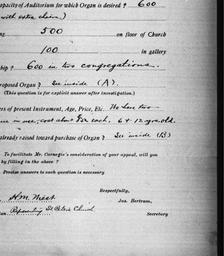 apacity of Auditorium for which Organ is desired? 600
with extra chairs)
ing 500 on floor of Church
100 in gallery
hip? 600 in two congregations.
roposed Organ? See inside (A).
(This question is for explicit answer after investigation.)
rs of present Instrument, Age, Price, Etc. We have two
in use, cost about each. 6 & 12 yrs old.
already raised toward purchase of Organ? See inside (B)
To facilitate Mr. Carnegie's consideration of your appeal, will you
by filling in the above?
Precise answers to each question is necessary.
Respectfully,
Jas. Bertram,
H.M.
Representing St Peters Church
Secretary